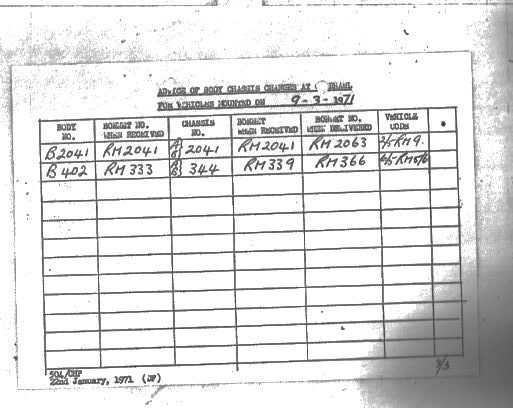 ADVICE OF BODY CHASSIS CHANGES AT
FOR VEHICLES MOUNTED ON 9-3-1971
BODY NO. BONNET NO. WHEN RECEIVED CHASSIS NO. BONNET WHEN RECEIVED BONNET NO. WHEN DELIVERED VEHICLE CODE *
B2041 RM2041 2041 RM2041 RM2063 2/5RM9.
B402 RM333 344 RM339 RM366 RM5/6
504/CHP
22nd January, 1971 (DF)
9/3